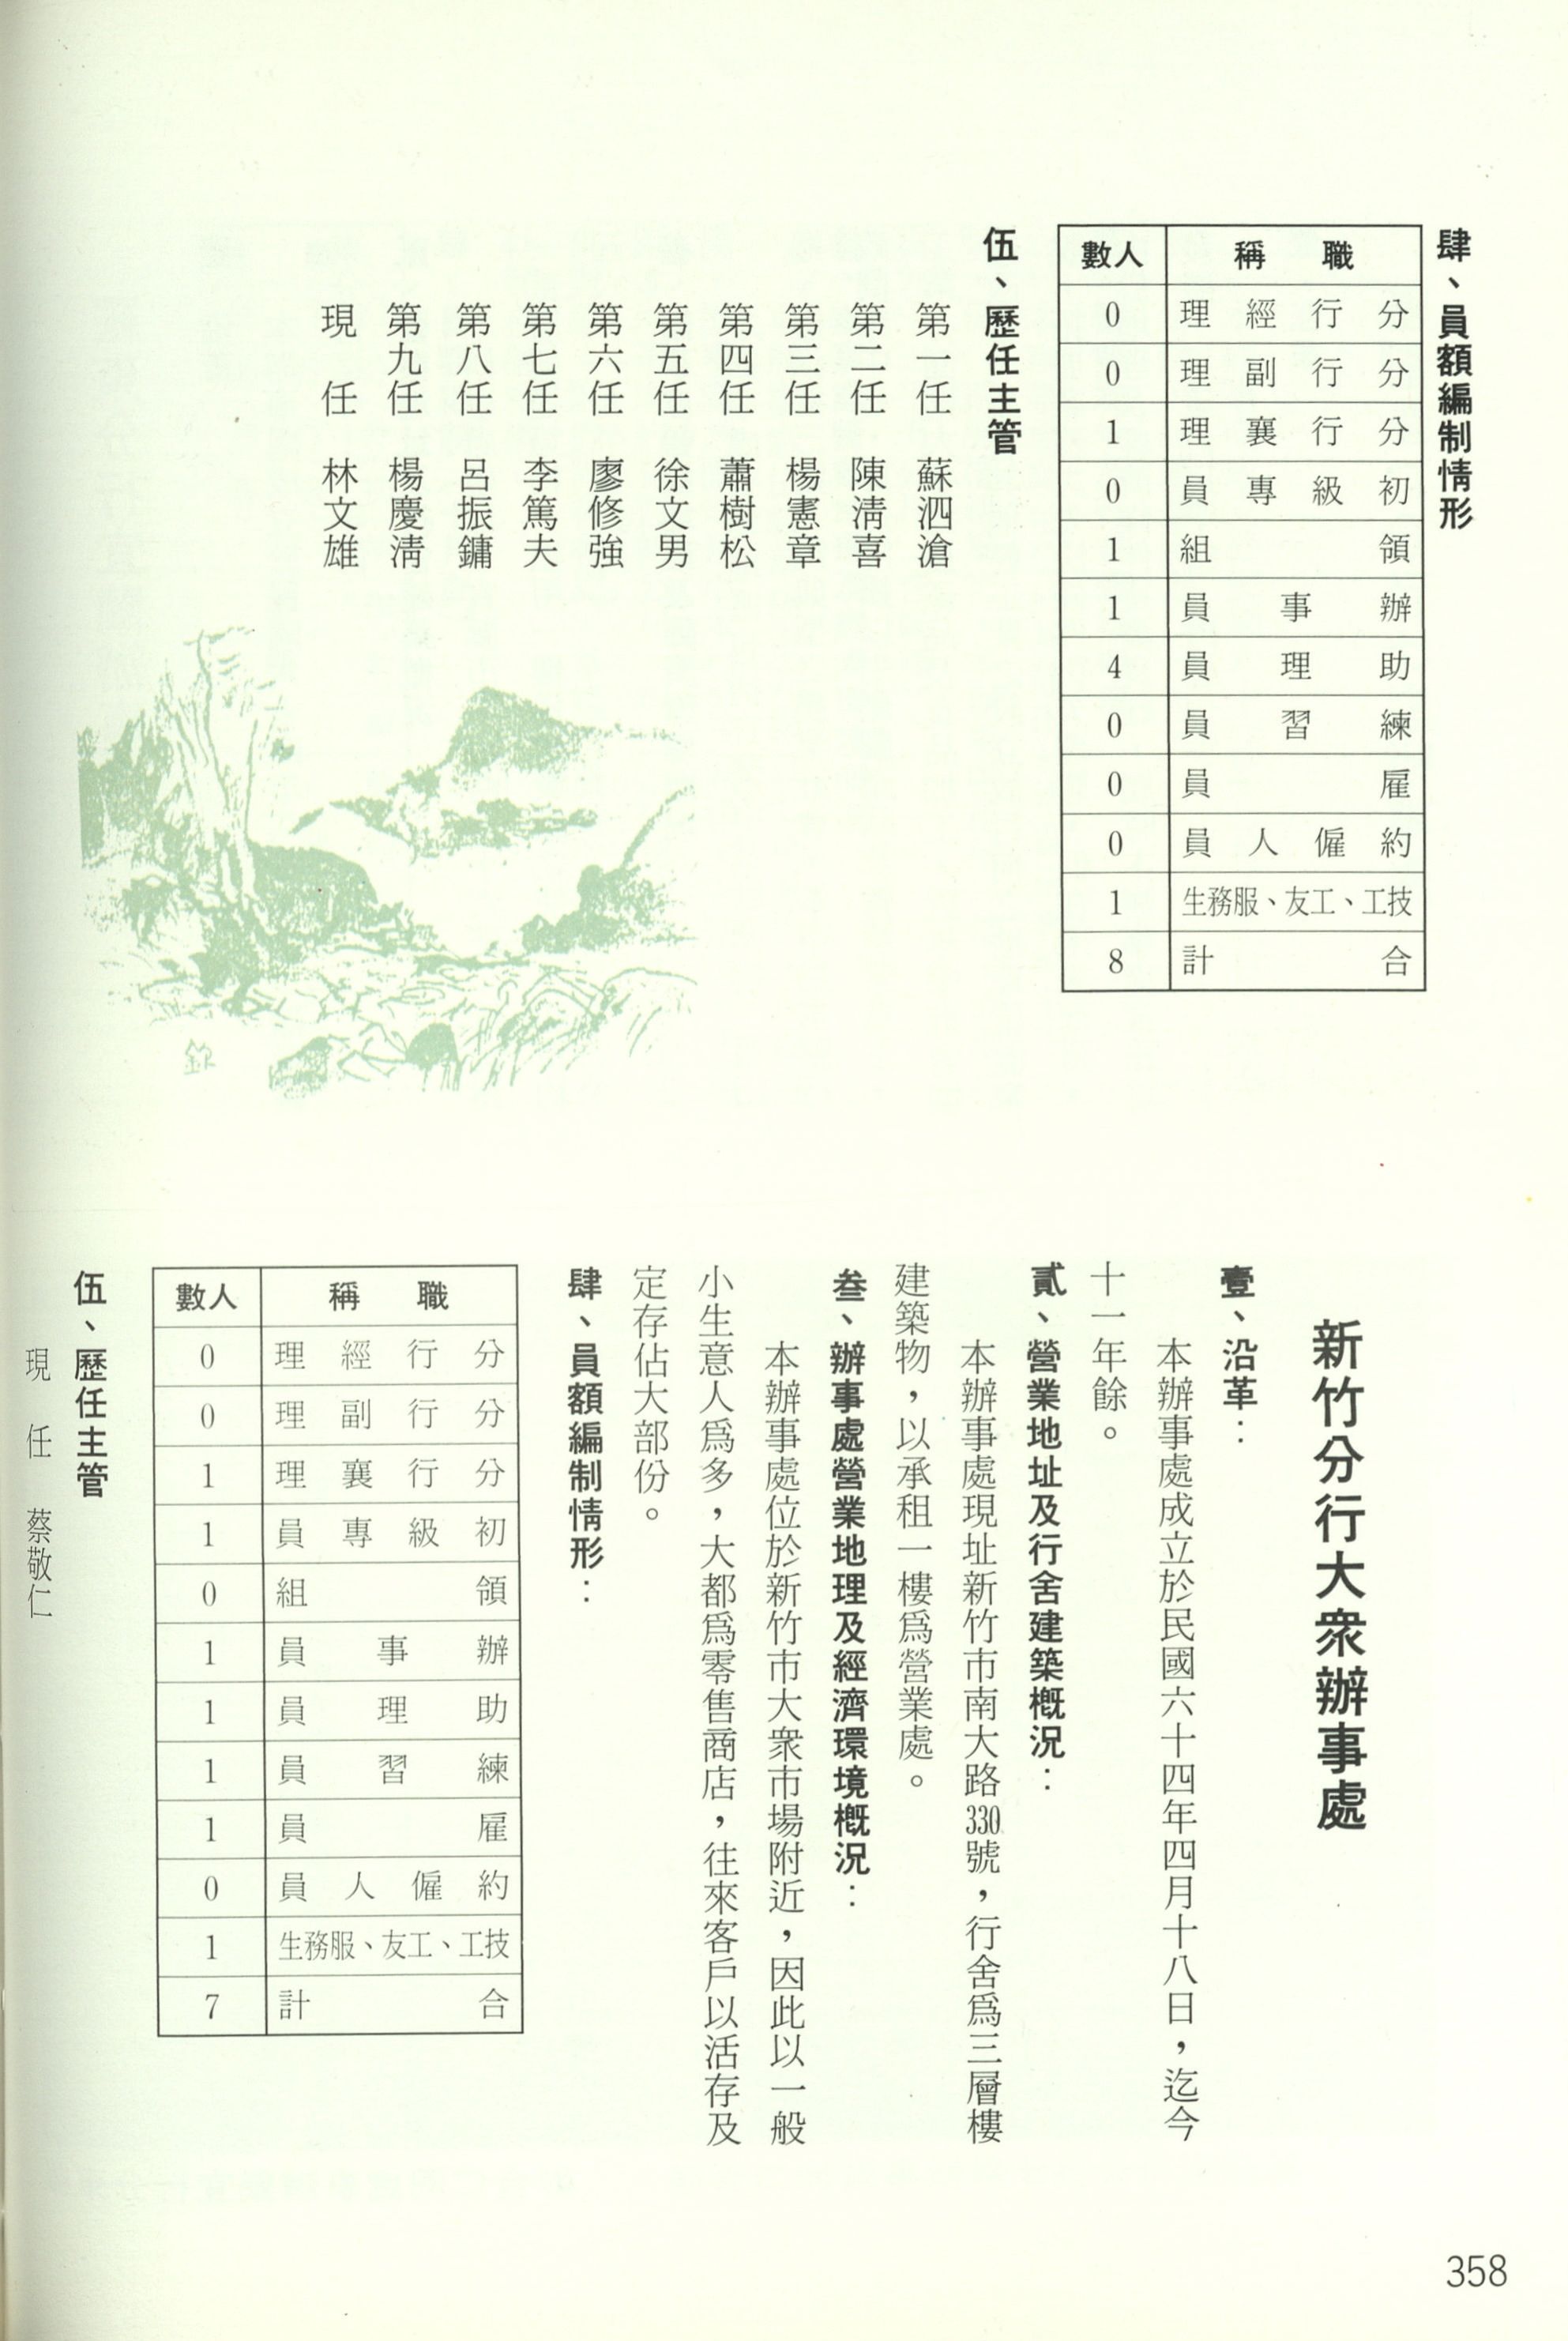 肆、員額編制情形
職稱 人數
分行經理 0
分行副理 0
分行襄理 1
初級專員 0
領組 1
辦事員 1
助理員 4
練習員 0
雇員 0
約僱人員 0
技工、工友、服務生 1
合計 8
伍、歷任主管
第一任 蘇泗滄
第二任 陳淸喜
第三任 楊憲章
第四任 蕭樹松
第五任 徐文男
第六任 廖修強
第七任 李篤夫
第八任 呂振鏞
第九任 楊慶淸
現任 林文雄
新竹分行大衆辦事處
壹、沿革：
本辦事處成立於民國六十四年四月十八日，迄今
十一年餘。
貳、營業地址及行舍建築槪況：
本辦事處現址新竹市南大路330號，行舍爲三層樓
建築物，以承租一樓爲營業處。
叁、辦事處營業地理及經濟環境槪況：
本辦事處位於新竹市大衆市場附近，因此以一般
小生意人爲多，大都爲零售商店，往來客戶以活存及
定存佔大部份。
肆、員額編制情形：
職稱 人數
分行經理 0
分行副理 0
分行襄理 1
初級專員 1
領組 0
辦事員 1
助理員 1
練習員 1
雇員 1
約僱人員 0
技工、工友、服務生 1
合計 7
伍、歷任主管
現任 蔡敬仁
358